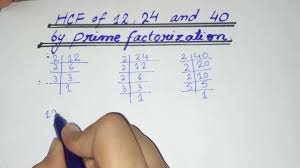 HCF of 12, 24 and 40
by prime factorization
2 | 12 2 | 24 2 | 40
2 | 6 2 | 12 2 | 20
3 | 3 2 | 6 2 | 10
1 3 | 3 5 | 5
1 1
12